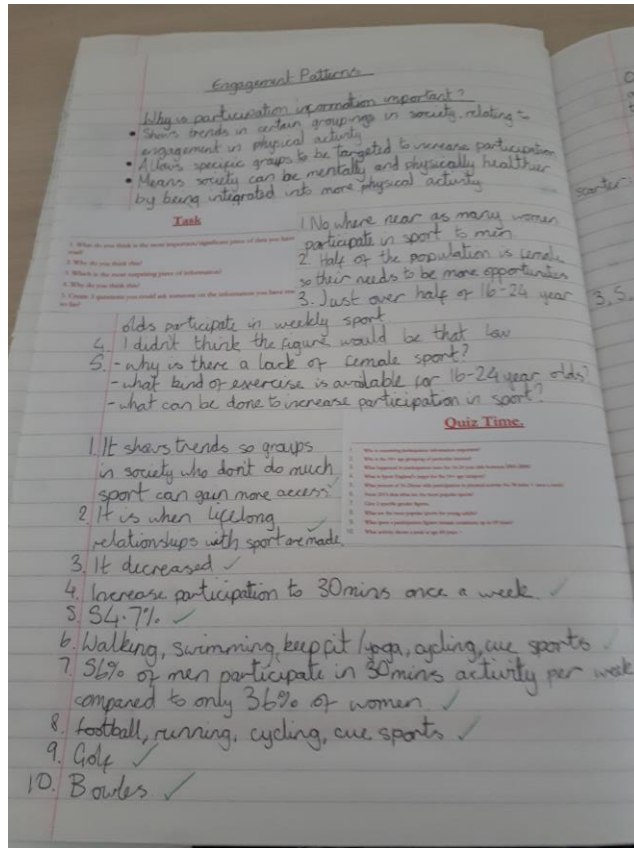 Engagement Patterns
Why is participation information important?
• Shows trends in certain groupings in society, relating to
engagement in physical activity
• Allows specific groups to be targeted to increase participation
• Means society can be mentally and physically healthier
by being integrated into more physical activity
Task
1. What do you think is the most important/significant piece of data you have
read?
2. Why do you think this?
3. Which is the most surprising piece of information?
4. Why do you think this?
5. Create 3 questions you could ask someone on the information you have
so far?
1. No where near as many women
participate in sport to men
2. Half of the population is female
so their needs to be more opportunities
3. Just over half of 16-24 year
olds participate in weekly sport
4. I didn't think the figure would be that low
5. - why is there a lack of female sport?
- what kind of exercise is available for 16-24 year olds?
- what can be done to increase participation in sport?
Quiz Time.
1. It shows trends so groups
in society who don't do much
sport can gain more access
2. It is when lifelong
relationships with sport are made.
3. It decreased
4. Increase participation to 30mins once a week
5. 54.7%
6. Walking, swimming, keep fit/yoga, cycling, cue sports
7. 56% of men participate in 30mins activity per week
compared to only 36% of women
8. football, running, cycling, cue sports
9. Golf
10. Bowles
starter:
3, 5,